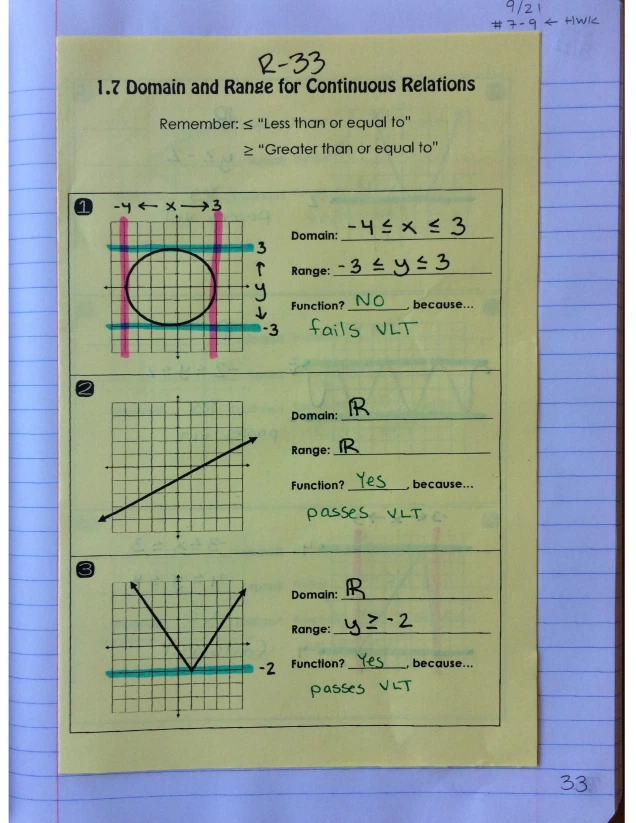 9/21
#7-9 ← HWK
R-33
1.7 Domain and Range for Continuous Relations
Remember: ≤ "Less than or equal to"
≥ "Greater than or equal to"
1
-4 ← x → 3
3
↑
y
↓
-3
Domain: -4 ≤ x ≤ 3
Range: -3 ≤ y ≤ 3
Function? NO, because...
fails VLT
2
Domain: ℝ
Range: ℝ
Function? Yes, because...
passes VLT
3
-2
Domain: ℝ
Range: y ≥ -2
Function? Yes, because...
passes VLT
33